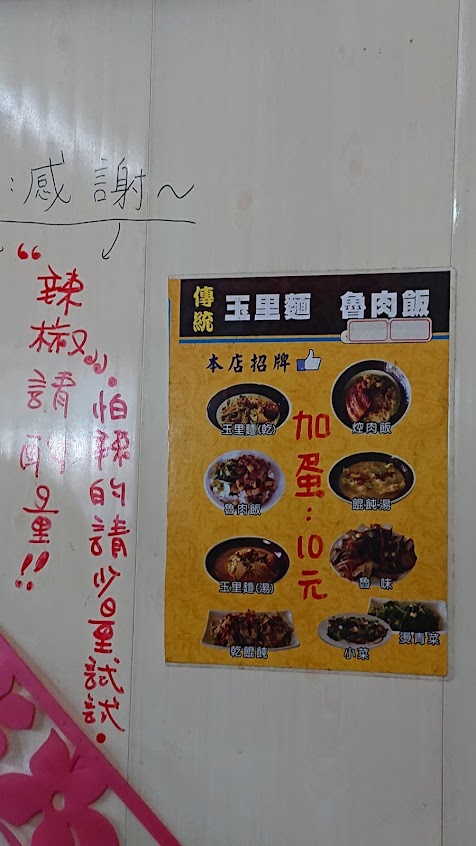 :感謝~
“辣椒”請酌量!!
怕辣的請少量試試.
傳統 玉里麵 魯肉飯
本店招牌
玉里麵(乾)
焢肉飯
魯肉飯
餛飩湯
玉里麵(湯)
魯味
乾餛飩
小菜
燙青菜
加蛋:10元